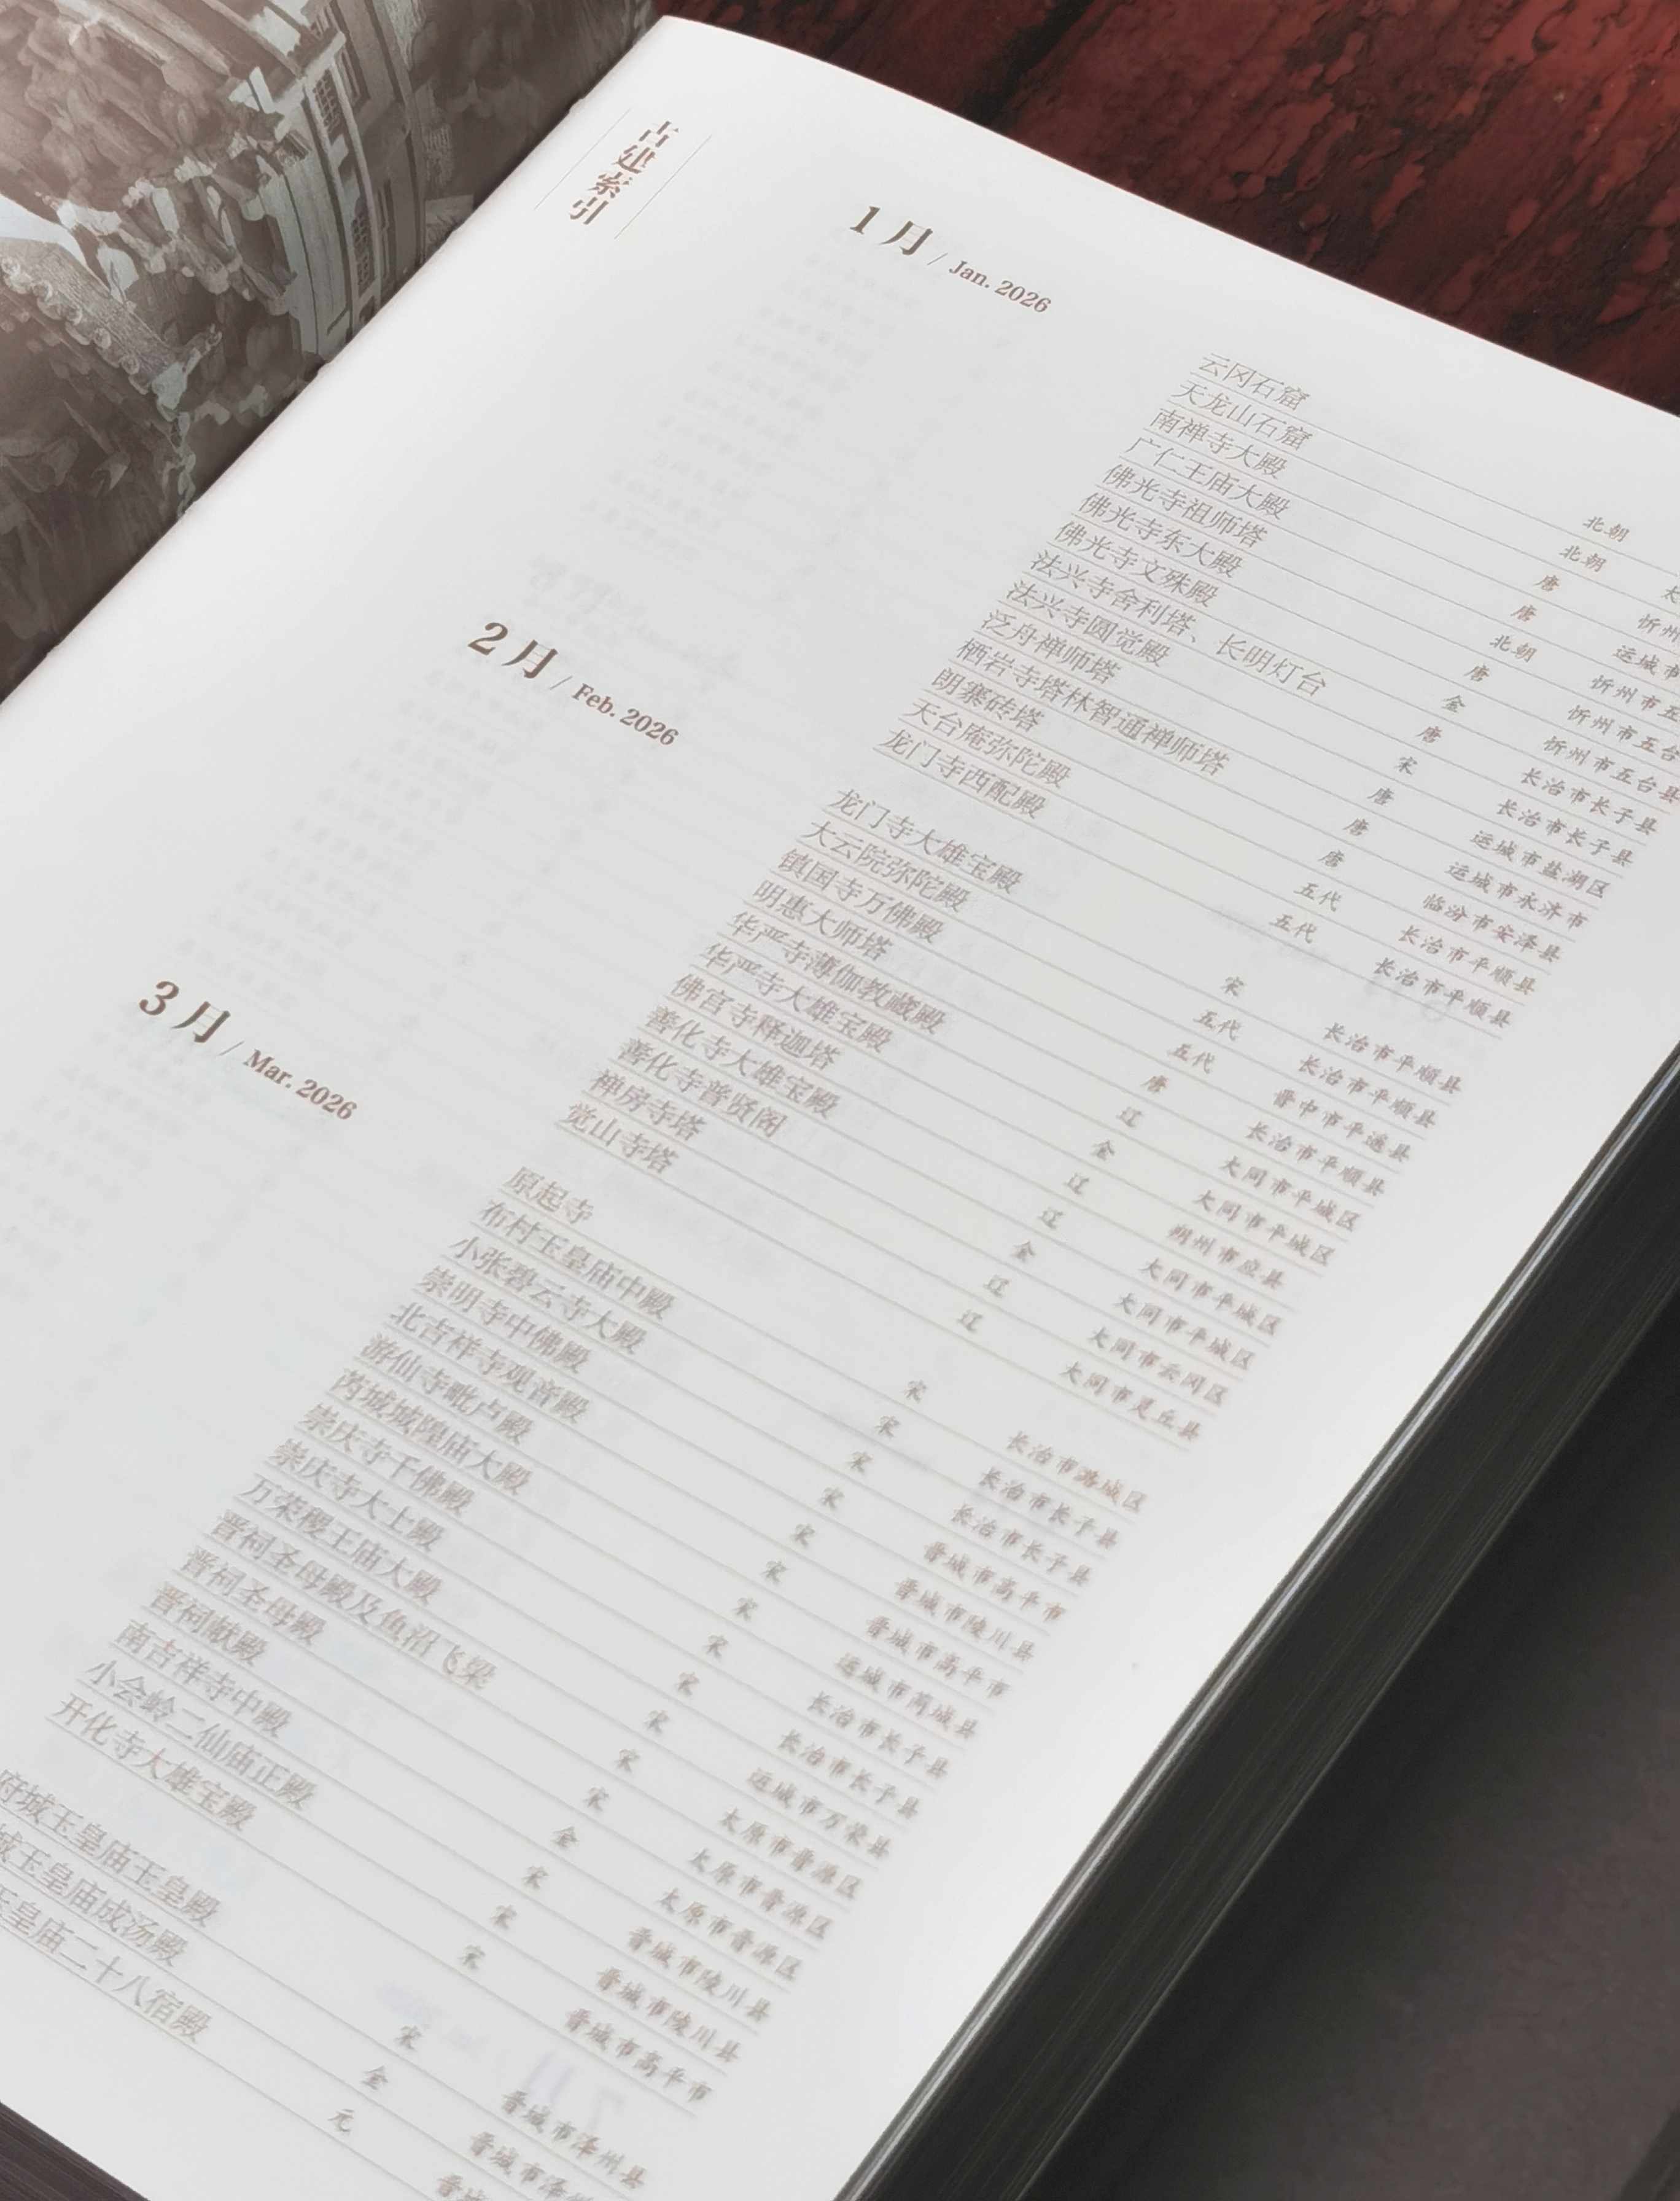 古建索引
1月 / Jan. 2026
云冈石窟 北朝
天龙山石窟 北朝 太
南禅寺大殿 唐 忻州
广仁王庙大殿 唐 运城市
佛光寺祖师塔 北朝 忻州市五
佛光寺东大殿 唐 忻州市五台
佛光寺文殊殿 金 忻州市五台县
法兴寺舍利塔、长明灯台 唐 长治市长子县
法兴寺圆觉殿 宋 长治市长子县
泛舟禅师塔 唐 运城市盐湖区
栖岩寺塔林智通禅师塔 唐 运城市永济市
朗寨砖塔 唐 临汾市安泽县
天台庵弥陀殿 五代 长治市平顺县
龙门寺西配殿 五代 长治市平顺县
2月 / Feb. 2026
龙门寺大雄宝殿 宋 长治市平顺县
大云院弥陀殿 五代 长治市平顺县
镇国寺万佛殿 五代 晋中市平遥县
明惠大师塔 唐 长治市平顺县
华严寺薄伽教藏殿 辽 大同市平城区
华严寺大雄宝殿 金 大同市平城区
佛宫寺释迦塔 辽 朔州市应县
善化寺大雄宝殿 辽 大同市平城区
善化寺普贤阁 金 大同市平城区
禅房寺塔 辽 大同市云冈区
觉山寺塔 辽 大同市灵丘县
3月 / Mar. 2026
原起寺 宋 长治市潞城区
布村玉皇庙中殿 宋 长治市长子县
小张碧云寺大殿 宋 长治市长子县
崇明寺中佛殿 宋 晋城市高平市
北吉祥寺观音殿 宋 晋城市陵川县
游仙寺毗卢殿 宋 晋城市高平市
芮城城隍庙大殿 宋 运城市芮城县
崇庆寺千佛殿 宋 长治市长子县
崇庆寺大士殿 宋 长治市长子县
万荣稷王庙大殿 宋 运城市万荣县
晋祠圣母殿及鱼沼飞梁 宋 太原市晋源区
晋祠圣母殿 宋 太原市晋源区
晋祠献殿 金 太原市晋源区
南吉祥寺中殿 宋 晋城市陵川县
小会岭二仙庙正殿 宋 晋城市陵川县
开化寺大雄宝殿 宋 晋城市高平市
府城玉皇庙玉皇殿 宋 晋城市泽州县
城玉皇庙成汤殿 金 晋城市泽州
玉皇庙二十八宿殿 元 晋城